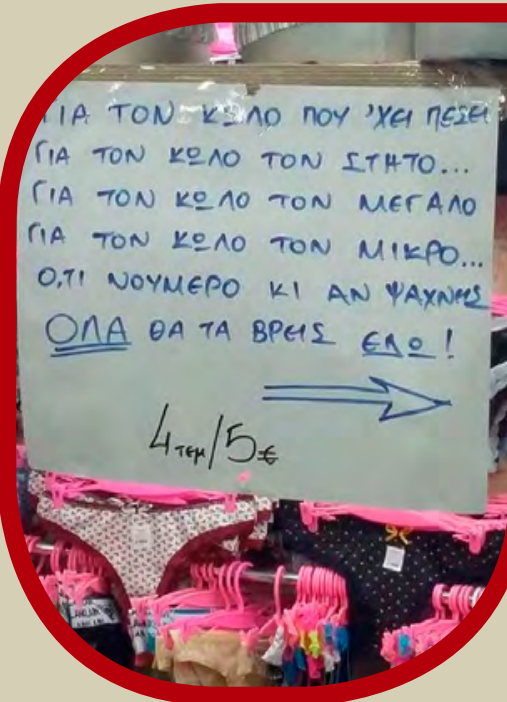 ΓΙΑ ΤΟΝ ΚΩΛΟ ΠΟΥ 'ΧΕΙ ΠΕΣΕΙ
ΓΙΑ ΤΟΝ ΚΩΛΟ ΤΟΝ ΣΤΗΤΟ...
ΓΙΑ ΤΟΝ ΚΩΛΟ ΤΟΝ ΜΕΓΑΛΟ
ΓΙΑ ΤΟΝ ΚΩΛΟ ΤΟΝ ΜΙΚΡΟ...
Ο,ΤΙ ΝΟΥΜΕΡΟ ΚΙ ΑΝ ΨΑΧΝΗΣ
ΟΛΑ ΘΑ ΤΑ ΒΡΕΙΣ ΕΔΩ!
4 τεμ/5€